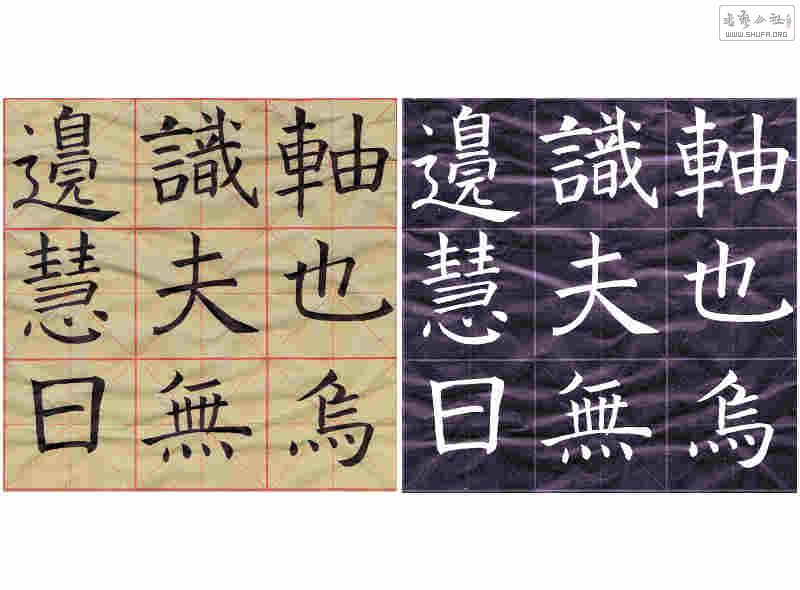 軸也烏
識夫無
邊慧日
軸也烏
識夫無
邊慧日
書藝公社
WWW.SHUFA.ORG